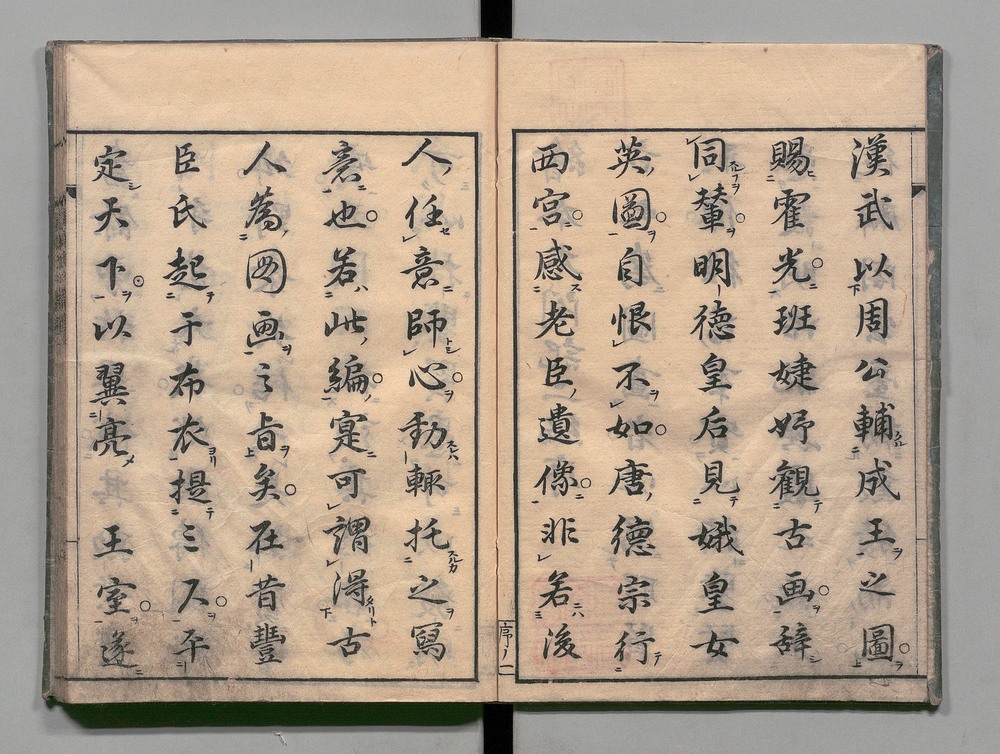 漢武以周公輔成王之圖
賜霍光班婕妤觀古画辞
同輦明徳皇后見娥皇女
英圖自恨不如唐德宗行
西宮感老臣遺像非若後
序ノ一
人任意師心動輙托之寫
意也若此編寔可謂淂古
人為図画之旨矣在昔豐
臣氏起于布衣提三尺平
定天下以翼亮王室遂